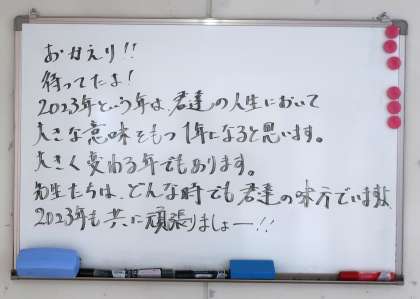 おかえり!!
待ってたよ!
2023年という年は、君達の人生において
大きな意味をもつ1年になると思います。
大きく変わる年でもあります。
先生たちは、どんな時でも君達の味方でいますよ
2023年も共に頑張りましょー!!